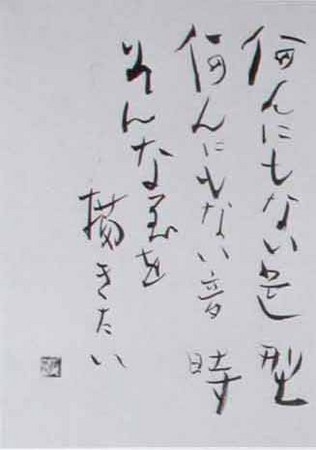 何んにもない 型
何んにもない音 時
そんな を
描きたい